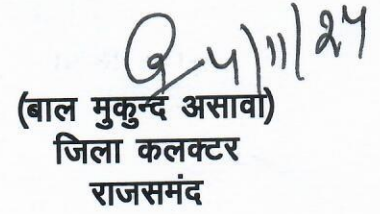 5/11/24
(बाल मुकुन्द असावा)
जिला कलक्टर
राजसमंद